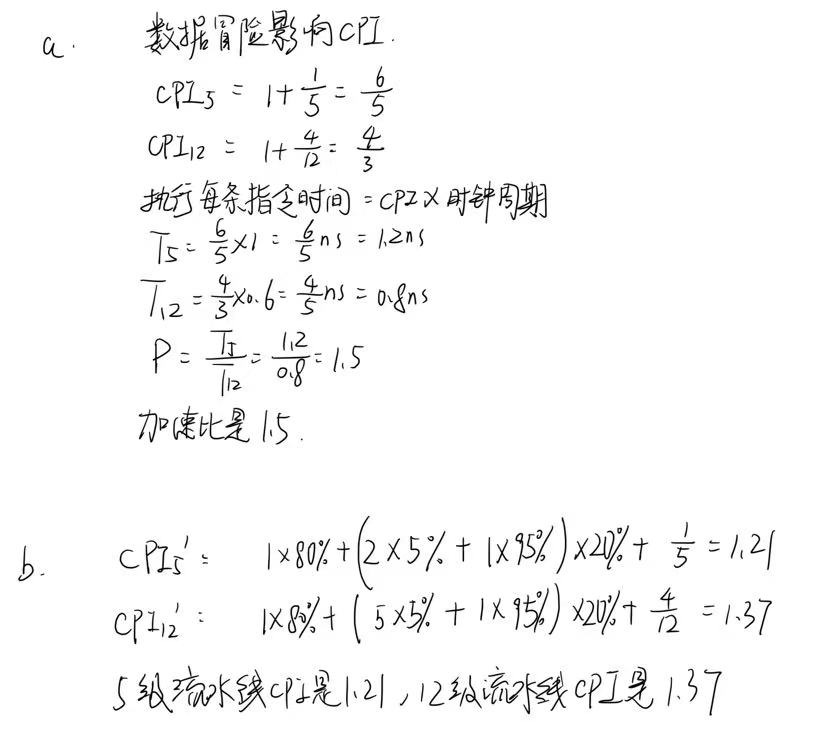 a. 数据冒险影响CPI.
CPI₅ = 1+1/5 = 6/5
CPI₁₂ = 1+4/12 = 4/3
执行每条指令时间=CPI×时钟周期
T₅ = 6/5×1 = 6/5 ns = 1.2ns
T₁₂ = 4/3×0.6 = 4/5 ns = 0.8ns
P = T₅/T₁₂ = 1.2/0.8 = 1.5
加速比是1.5.
b. CPI₅′: 1×80%+(2×5%+1×95%)×20%+1/5 = 1.21
CPI₁₂′: 1×80%+(5×5%+1×95%)×20%+4/12 = 1.37
5级流水线CPI是1.21,12级流水线CPI是1.37